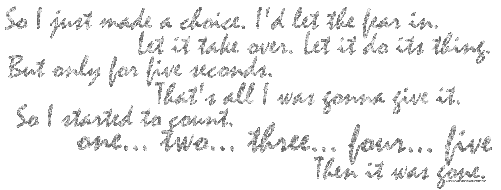 So I just made a choice. I'd let the fear in.
Let it take over. Let it do its thing.
But only for five seconds.
That's all I was gonna give it.
So I started to count.
one... two... three... four... five
Then it was gone.